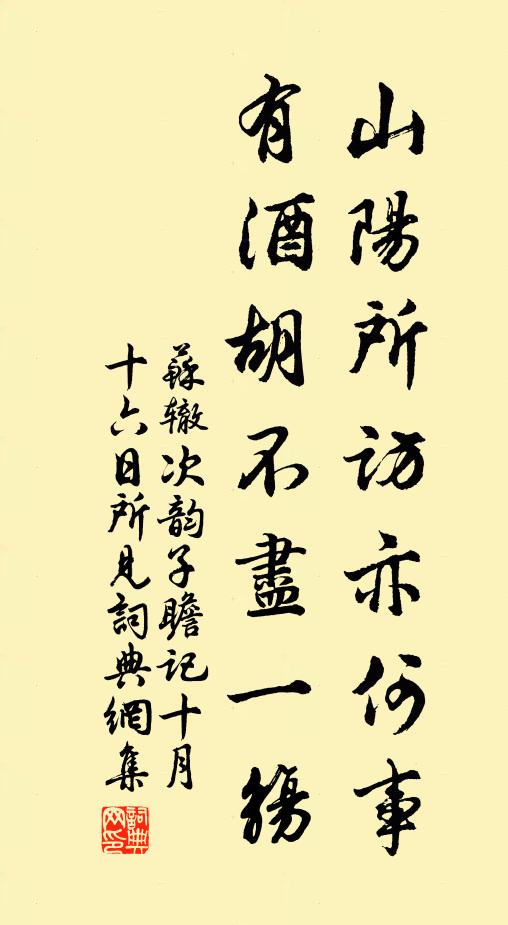 山陽所訪亦何事
有酒胡不盡一觴
蘇辙次韵子瞻記十月
十六日所見詞典網集
詞典
网印